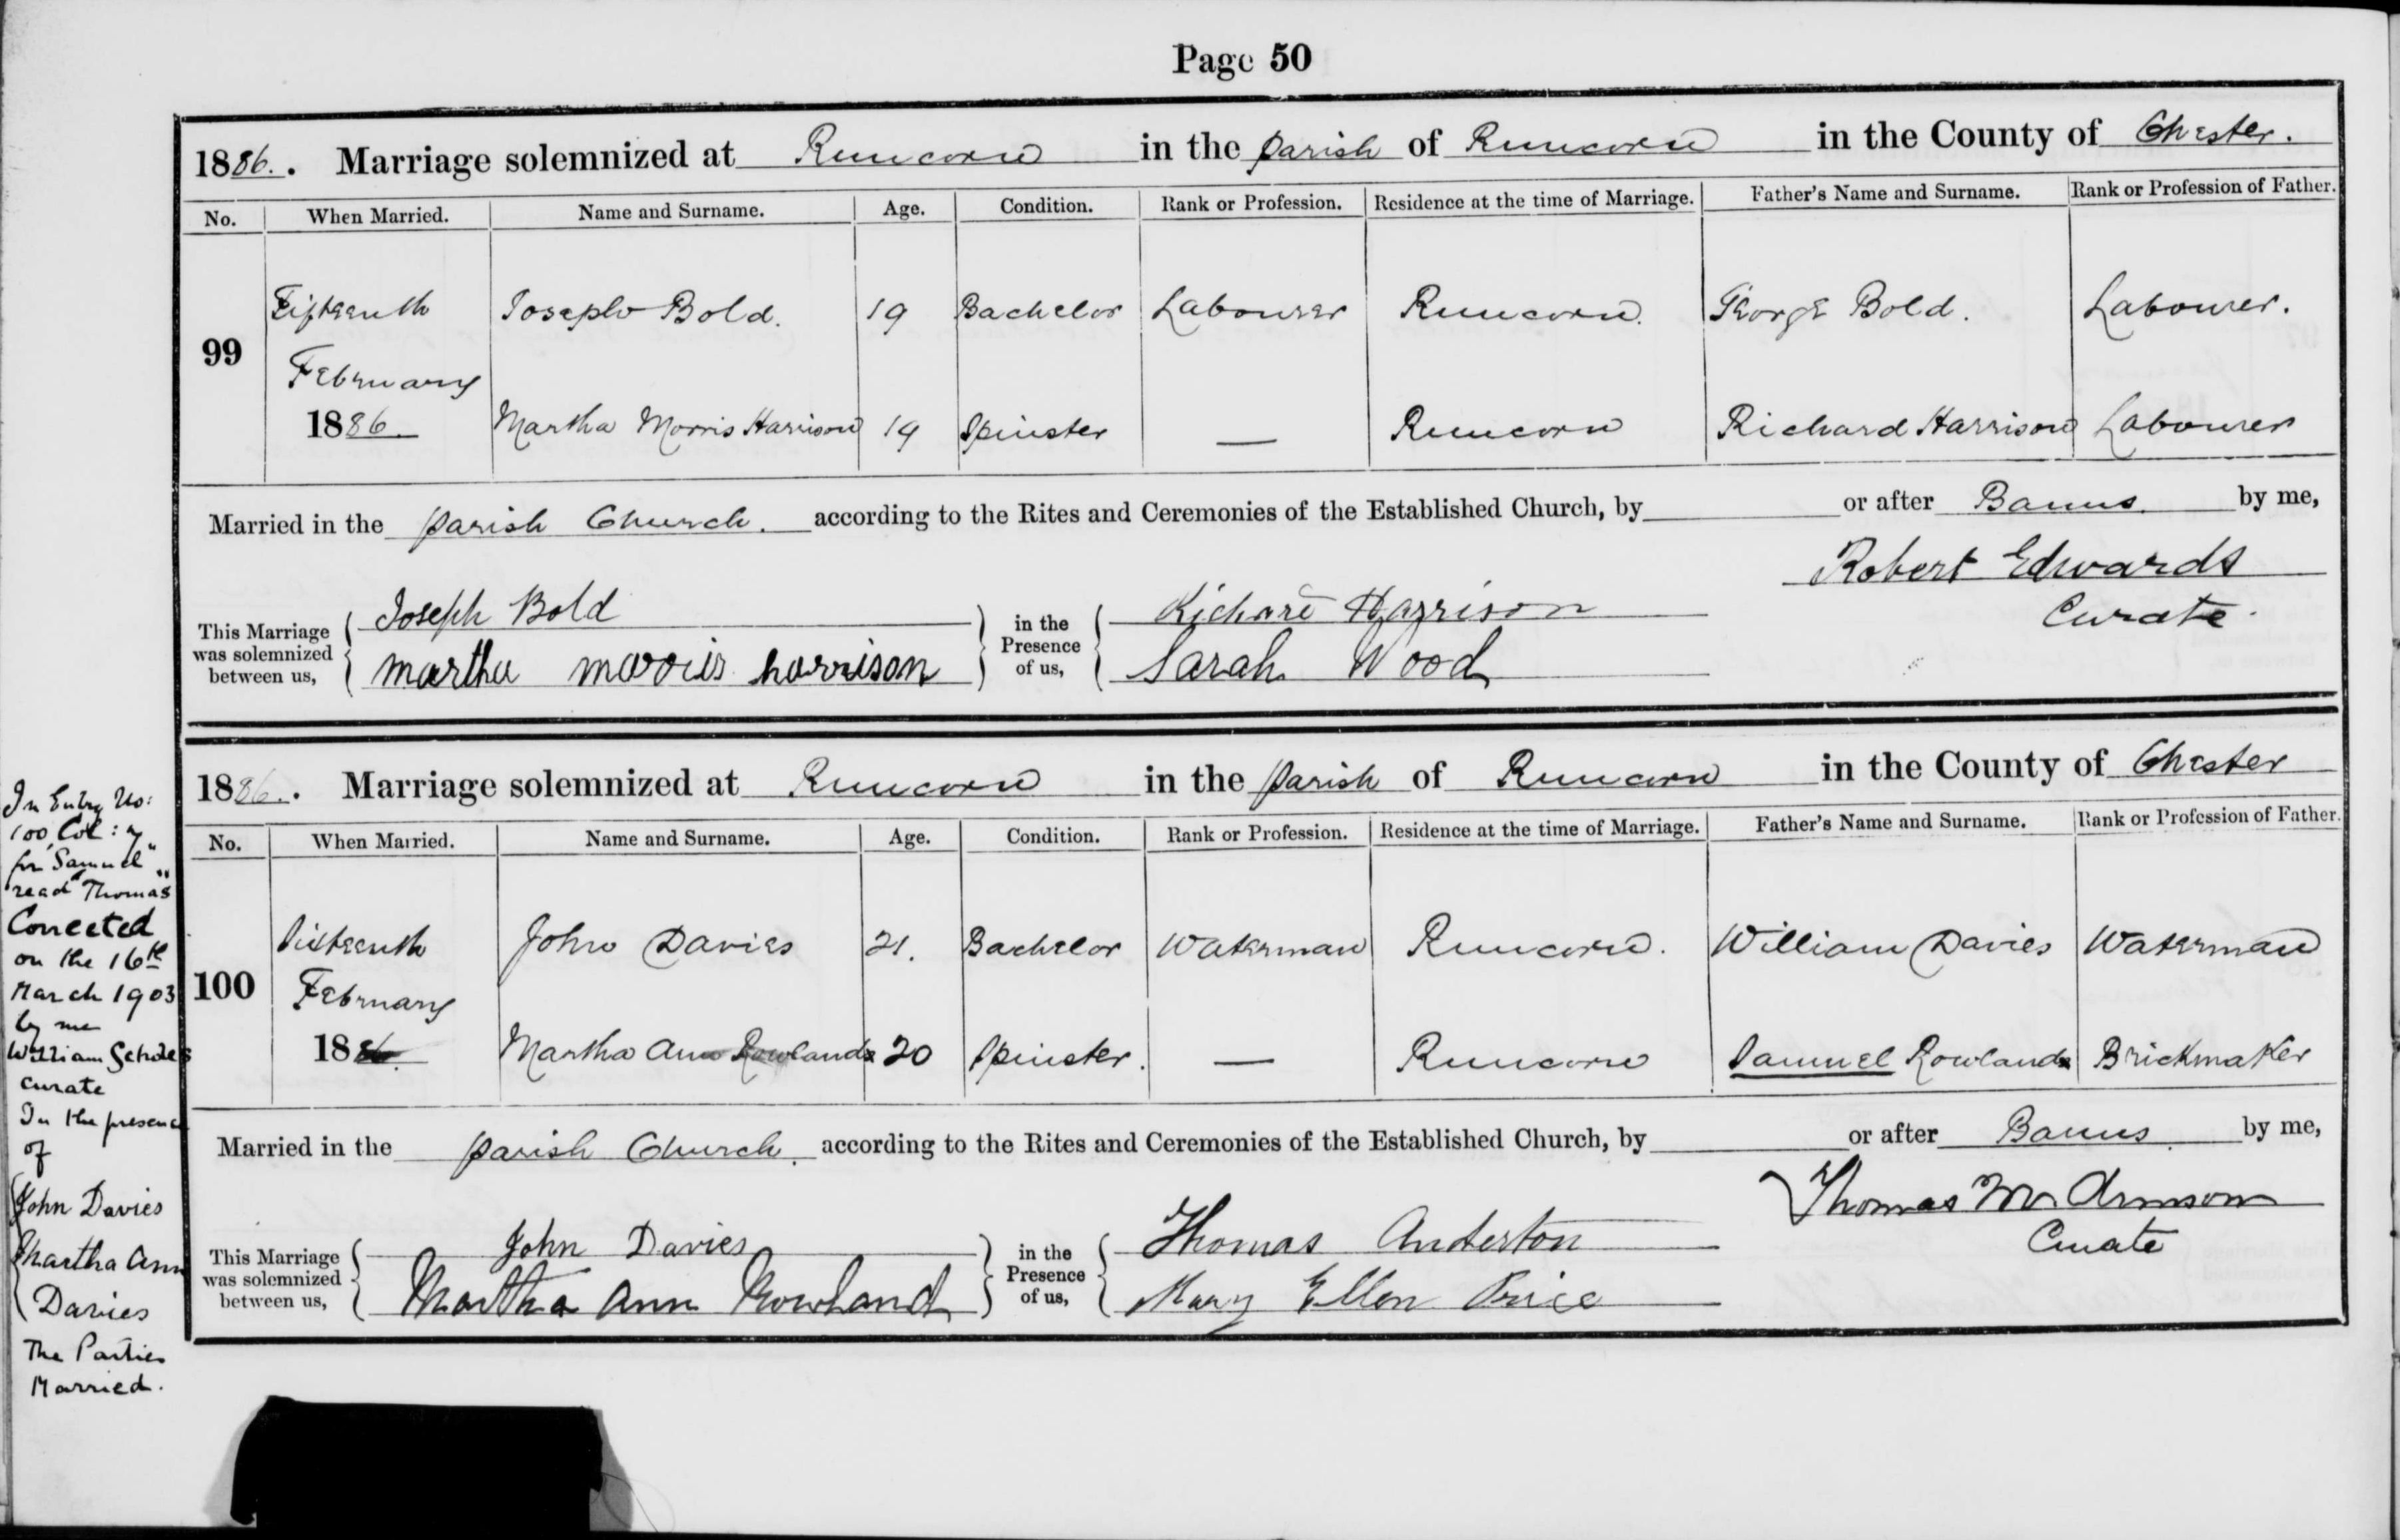 Page 50
1886. . Marriage solemnized at Runcorn in the Parish of Runcorn in the County of Chester.
No. When Married. Name and Surname. Age. Condition. Rank or Profession. Residence at the time of Marriage. Father's Name and Surname. Rank or Profession of Father.
Fifteenth Joseph Bold. 19 Bachelor Labourer Runcorn. George Bold. Labourer.
99
February
1886. Martha Morris Harrison 19 Spinster — Runcorn Richard Harrison Labourer
Married in the Parish Church. according to the Rites and Ceremonies of the Established Church, by or after Banns. by me,
Robert Edwards
Curate.
This Marriage was solemnized between us,
Joseph Bold
martha morris harrison
in the Presence of us,
Richard Harrison
Sarah Wood
1886. . Marriage solemnized at Runcorn in the Parish of Runcorn in the County of Chester
No. When Married. Name and Surname. Age. Condition. Rank or Profession. Residence at the time of Marriage. Father's Name and Surname. Rank or Profession of Father.
Sixteenth John Davies 21. Bachelor Waterman Runcorn. William Davies Waterman
100
February
1886. Martha Ann Rowlands 20 Spinster. — Runcorn Samuel Rowlands Brickmaker
Married in the Parish Church. according to the Rites and Ceremonies of the Established Church, by or after Banns. by me,
Thomas M. Armson
Curate
This Marriage was solemnized between us,
John Davies
Martha Ann Rowland
in the Presence of us,
Thomas Anderton
Mary Ellen Price
In Entry No:
100, Col: 7
for "Samuel"
read "Thomas"
Corrected
on the 16th
March 1903
by me
William Scholes
curate
In the presence
of
John Davies
Martha Ann
Davies
The Parties
Married.